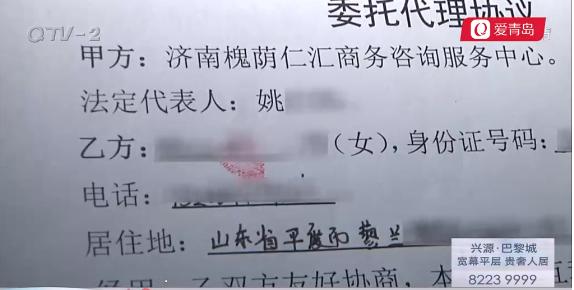 委托代理协议
QTV-2
爱青岛
甲方：济南槐荫仁汇商务咨询服务中心。
法定代表人：姚
乙方：（女），身份证号码：
电话：
居住地：山东省平度市蓼兰
兴源·巴黎城
宽幕平层 贵奢人居
8223 9999
乙双方友好协商，本